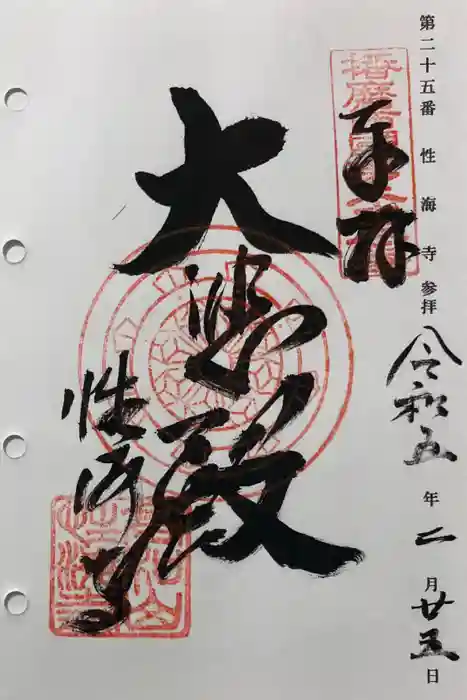 第二十五番 性海寺参拝
令和五年二月廿五日
奉拝
大悲殿
性海寺